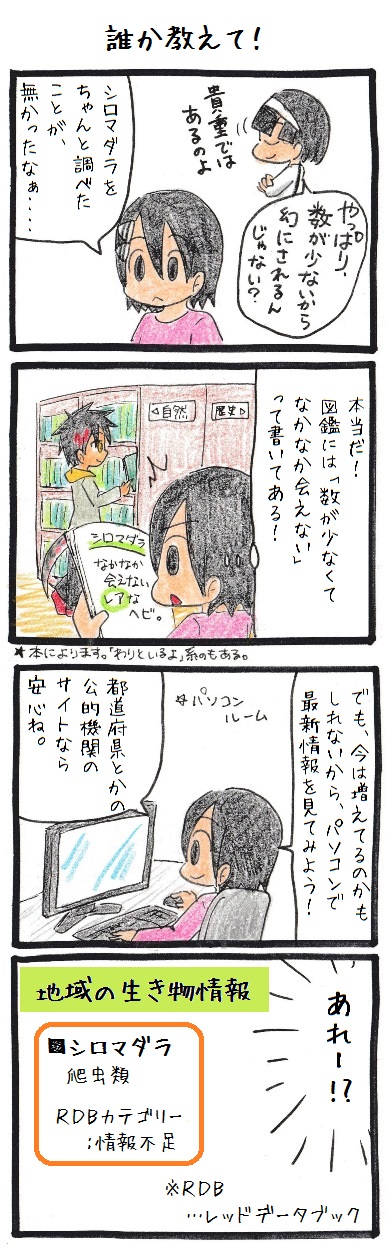 誰か教えて!
貴重では
あるのよ
やっぱり、
数が少ないから
幻にされるん
じゃない?
シロマダラを
ちゃんと調べた
ことが、
無かったなぁ・・・・
本当だ!
図鑑には「数が少なくて
なかなか会えない」
って書いてある!
◁自然
歴史▷
シロマダラ
なかなか
会えない
レアな
ヘビ。
★本によります。「わりといるよ」系のもある。
でも、今は増えてるのかも
しれないから、パソコンで
最新情報を見てみよう!
☆パソコン
ルーム
都道府県とかの
公的機関の
サイトなら
安心ね。
あれー!?
地域の生き物情報
シロマダラ
爬虫類
RDBカテゴリー
:情報不足
※RDB
…レッドデータブック